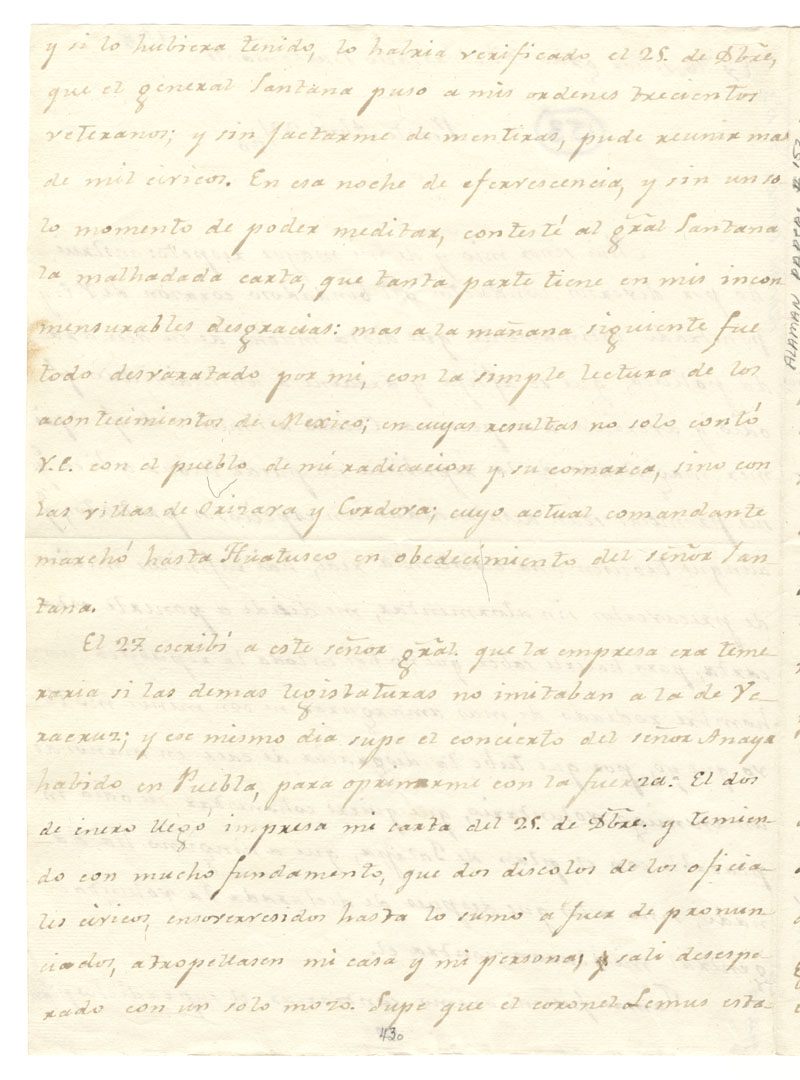 y si lo hubiera tenido, lo habria verificado el 25. de Dbre,
que el general Santana puso a mis ordenes trecientos
veteranos; y sin jactarme de mentiras, pude reunir mas
de mil civicos. En esa noche de efervescencia, y sin un so
lo momento de poder meditar, contesté al gral Santana
la malhadada carta, que tanta parte tiene en mis incon
mensurables desgracias: mas a la mañana siguiente fue
todo desvaratado por mi, con la simple lectura de los
acontecimientos de Mexico; en cuyas resultas no solo contó
V.E. con el pueblo de mi radicacion y su comarca, sino con
las villas de Orizava y Cordova; cuyo actual comandante
marchó hasta Huatusco en obedecimiento del señor San
tana.
El 27. escribí a este señor gral. que la empresa era teme
raria si las demas legislaturas no imitaban a la de Ve-
racruz; y ese mismo dia supe el concierto del señor Anaya
habido en Puebla, para oprimirme con la fuerza. El dos
de enero llegó impresa mi carta del 25. de Dbre. y temien-
do con mucho fundamento, que dos discolos de los oficia-
les civicos, ensovervesidos hasta lo sumo a fuer de pronun-
ciados, atropellasen mi casa y mi persona, sali desespe-
rado con un solo mozo. Supe que el coronel Lemus esta-
430
ALAMAN PAPERS # 153